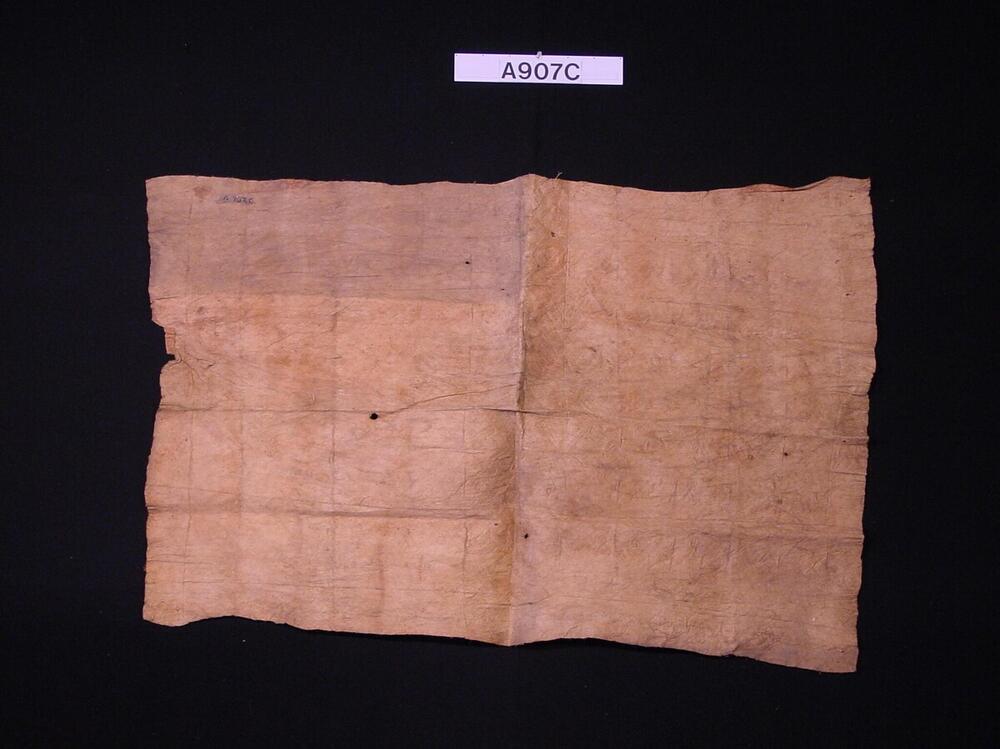 A907C
A 907 C